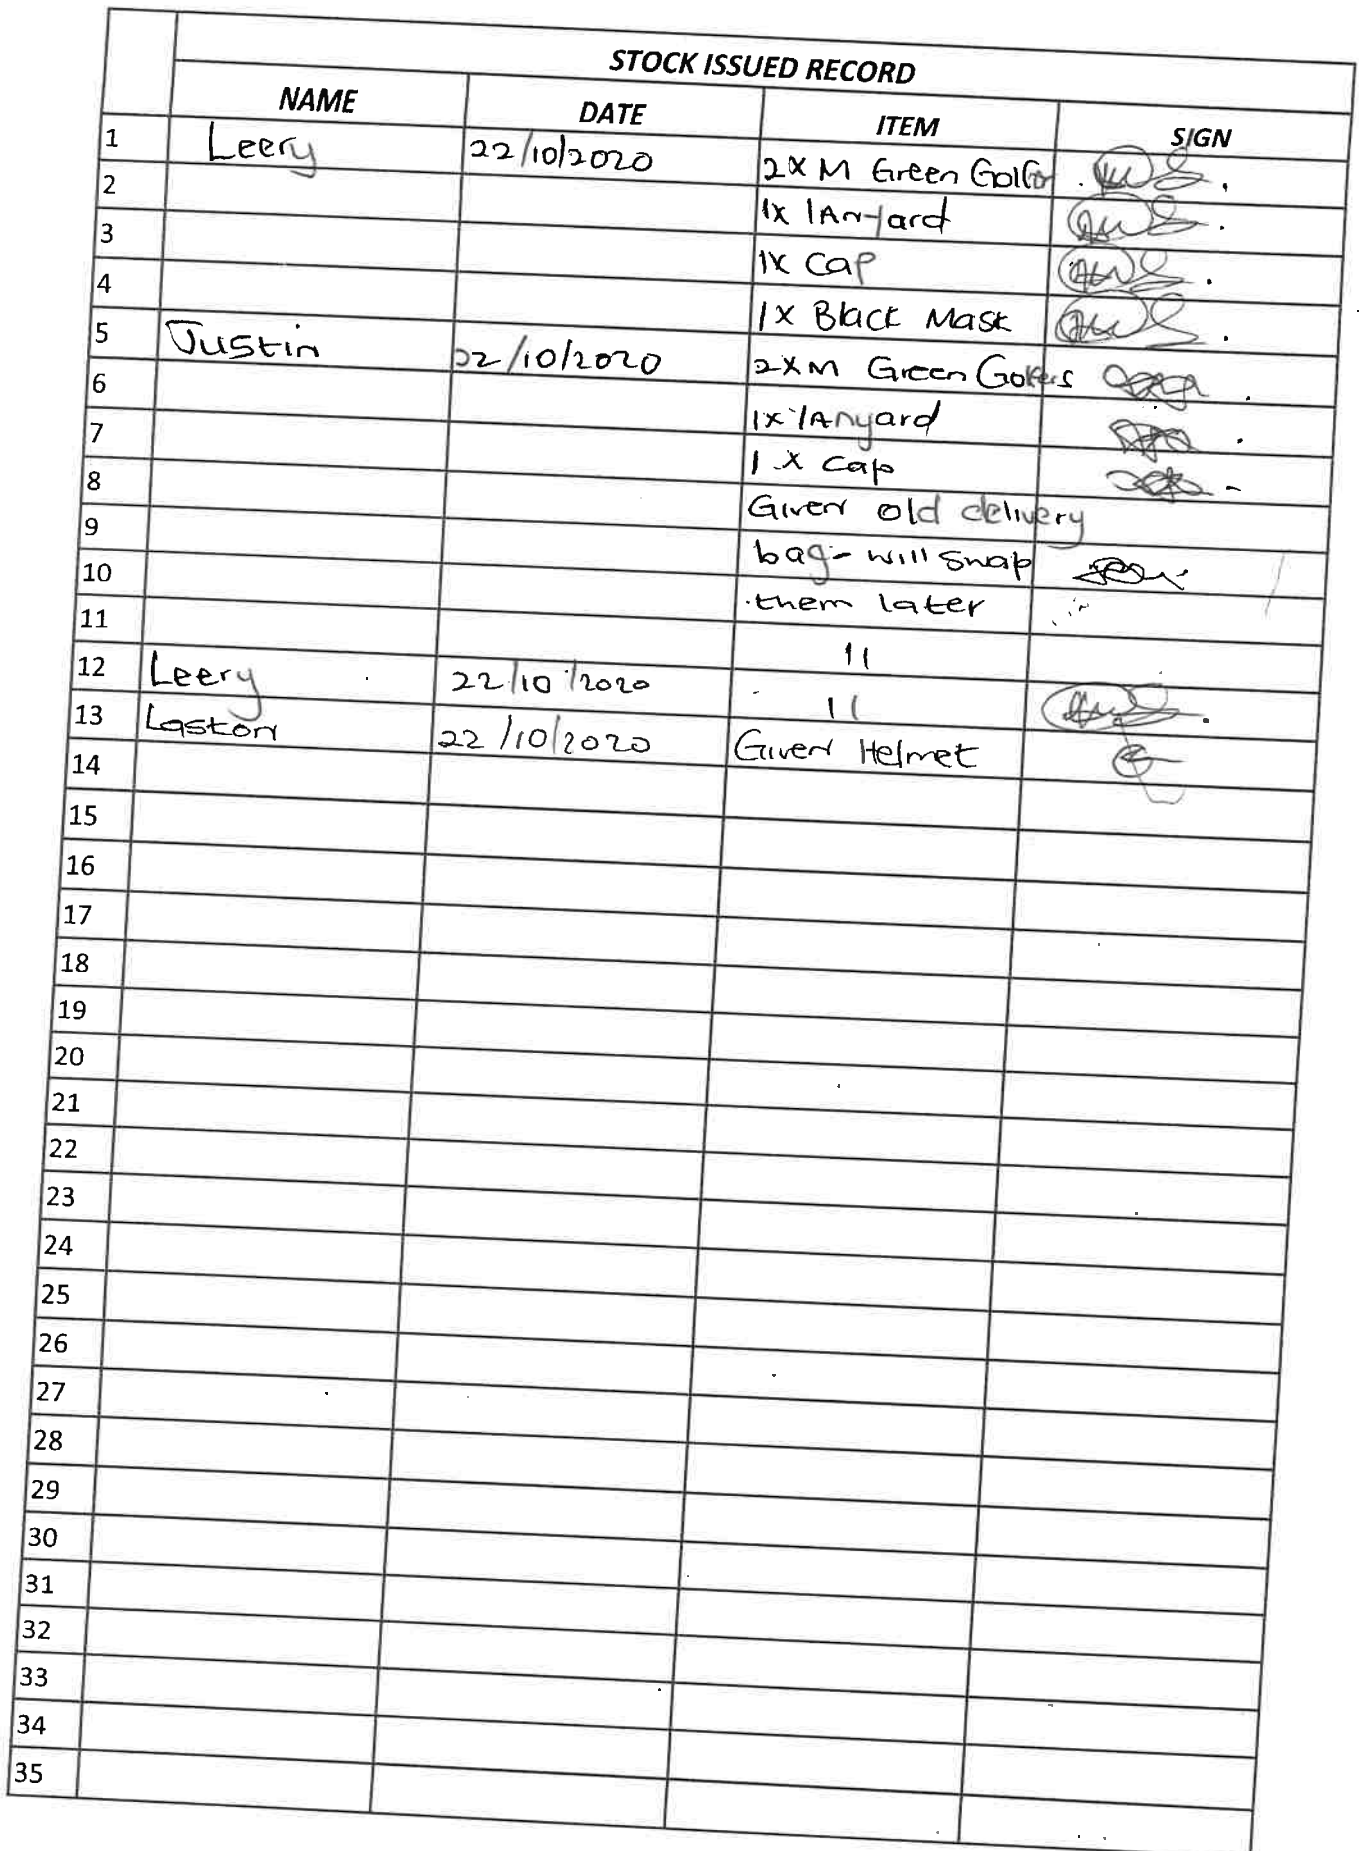 STOCK ISSUED RECORD
NAME DATE ITEM SIGN
1 Leery 22/10/2020 2 X M Green Golfer
2 1x lAnyard
3 1x Cap
4 1 X Black Mask
5 Justin 22/10/2020 2 X M Green Golfers
6 1x lAnyard
7 1 X Cap
8 Given old delivery
9 bag - will swap
10 them later
11 11
12 Leery 22/10/2020 11
13 Laston 22/10/2020 Given Helmet
14
15
16
17
18
19
20
21
22
23
24
25
26
27
28
29
30
31
32
33
34
35